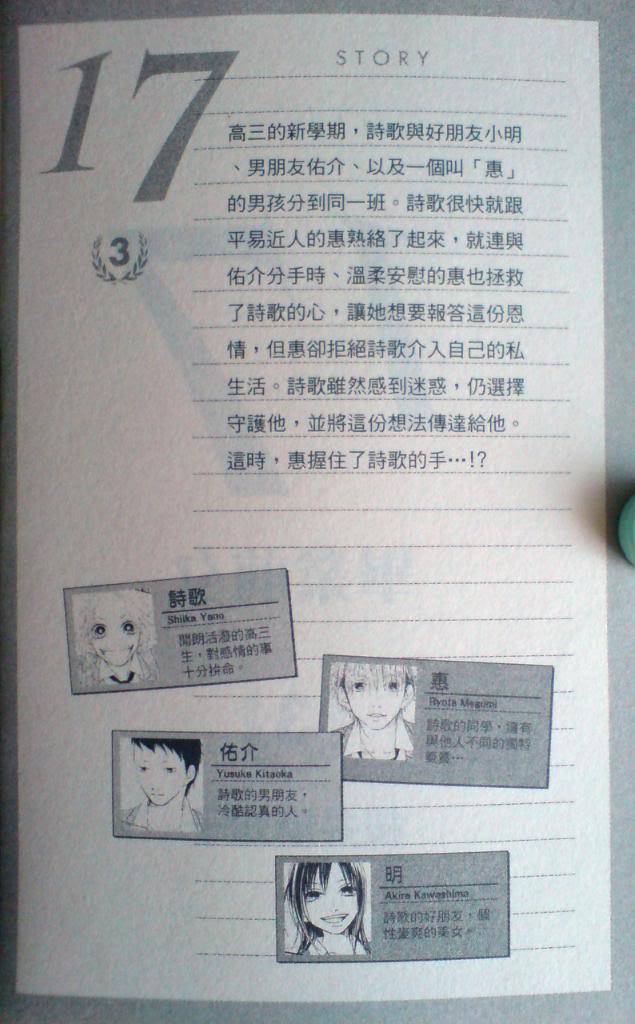 17
STORY
3
高三的新學期，詩歌與好朋友小明
、男朋友佑介、以及一個叫「惠」
的男孩分到同一班。詩歌很快就跟
平易近人的惠熟絡了起來，就連與
佑介分手時、溫柔安慰的惠也拯救
了詩歌的心，讓她想要報答這份恩
情，但惠卻拒絕詩歌介入自己的私
生活。詩歌雖然感到迷惑，仍選擇
守護他，並將這份想法傳達給他。
這時，惠握住了詩歌的手…!?
詩歌
Shiika Yano
開朗活潑的高三
生，對感情的事
十分拚命。
惠
Ryota Megumi
詩歌的同學，擁有
與他人不同的獨特
佑介
Yusuke Kitaoka
詩歌的男朋友，
冷酷認真的人。
明
Akira Kawashima
詩歌的好朋友，個
性豪爽的美女。